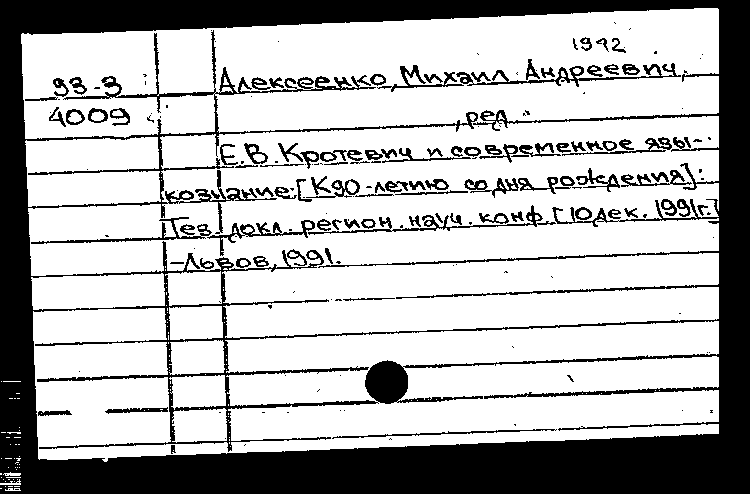 1942
93-3 Алексеенко, Михаил Андреевич,
4009 , ред.
Е.В. Кротевич и современное язы-
кознание: [К 90-летию со дня рождения]:
Тез. докл. регион. науч. конф. [10 дек. 1991г.]
-Львов, 1991.